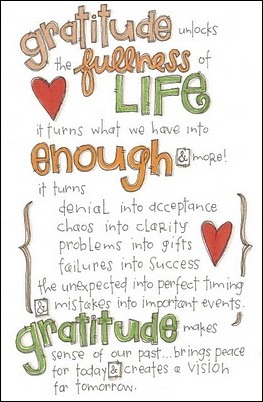 gratitude unlocks
the fullness of
LIFE
it turns what we have into
enough & more!
it turns
denial into acceptance
chaos into clarity
problems into gifts
failures into success
the unexpected into perfect timing
& mistakes into important events.
gratitude makes
sense of our past... brings peace
for today & creates a vision
for tomorrow.